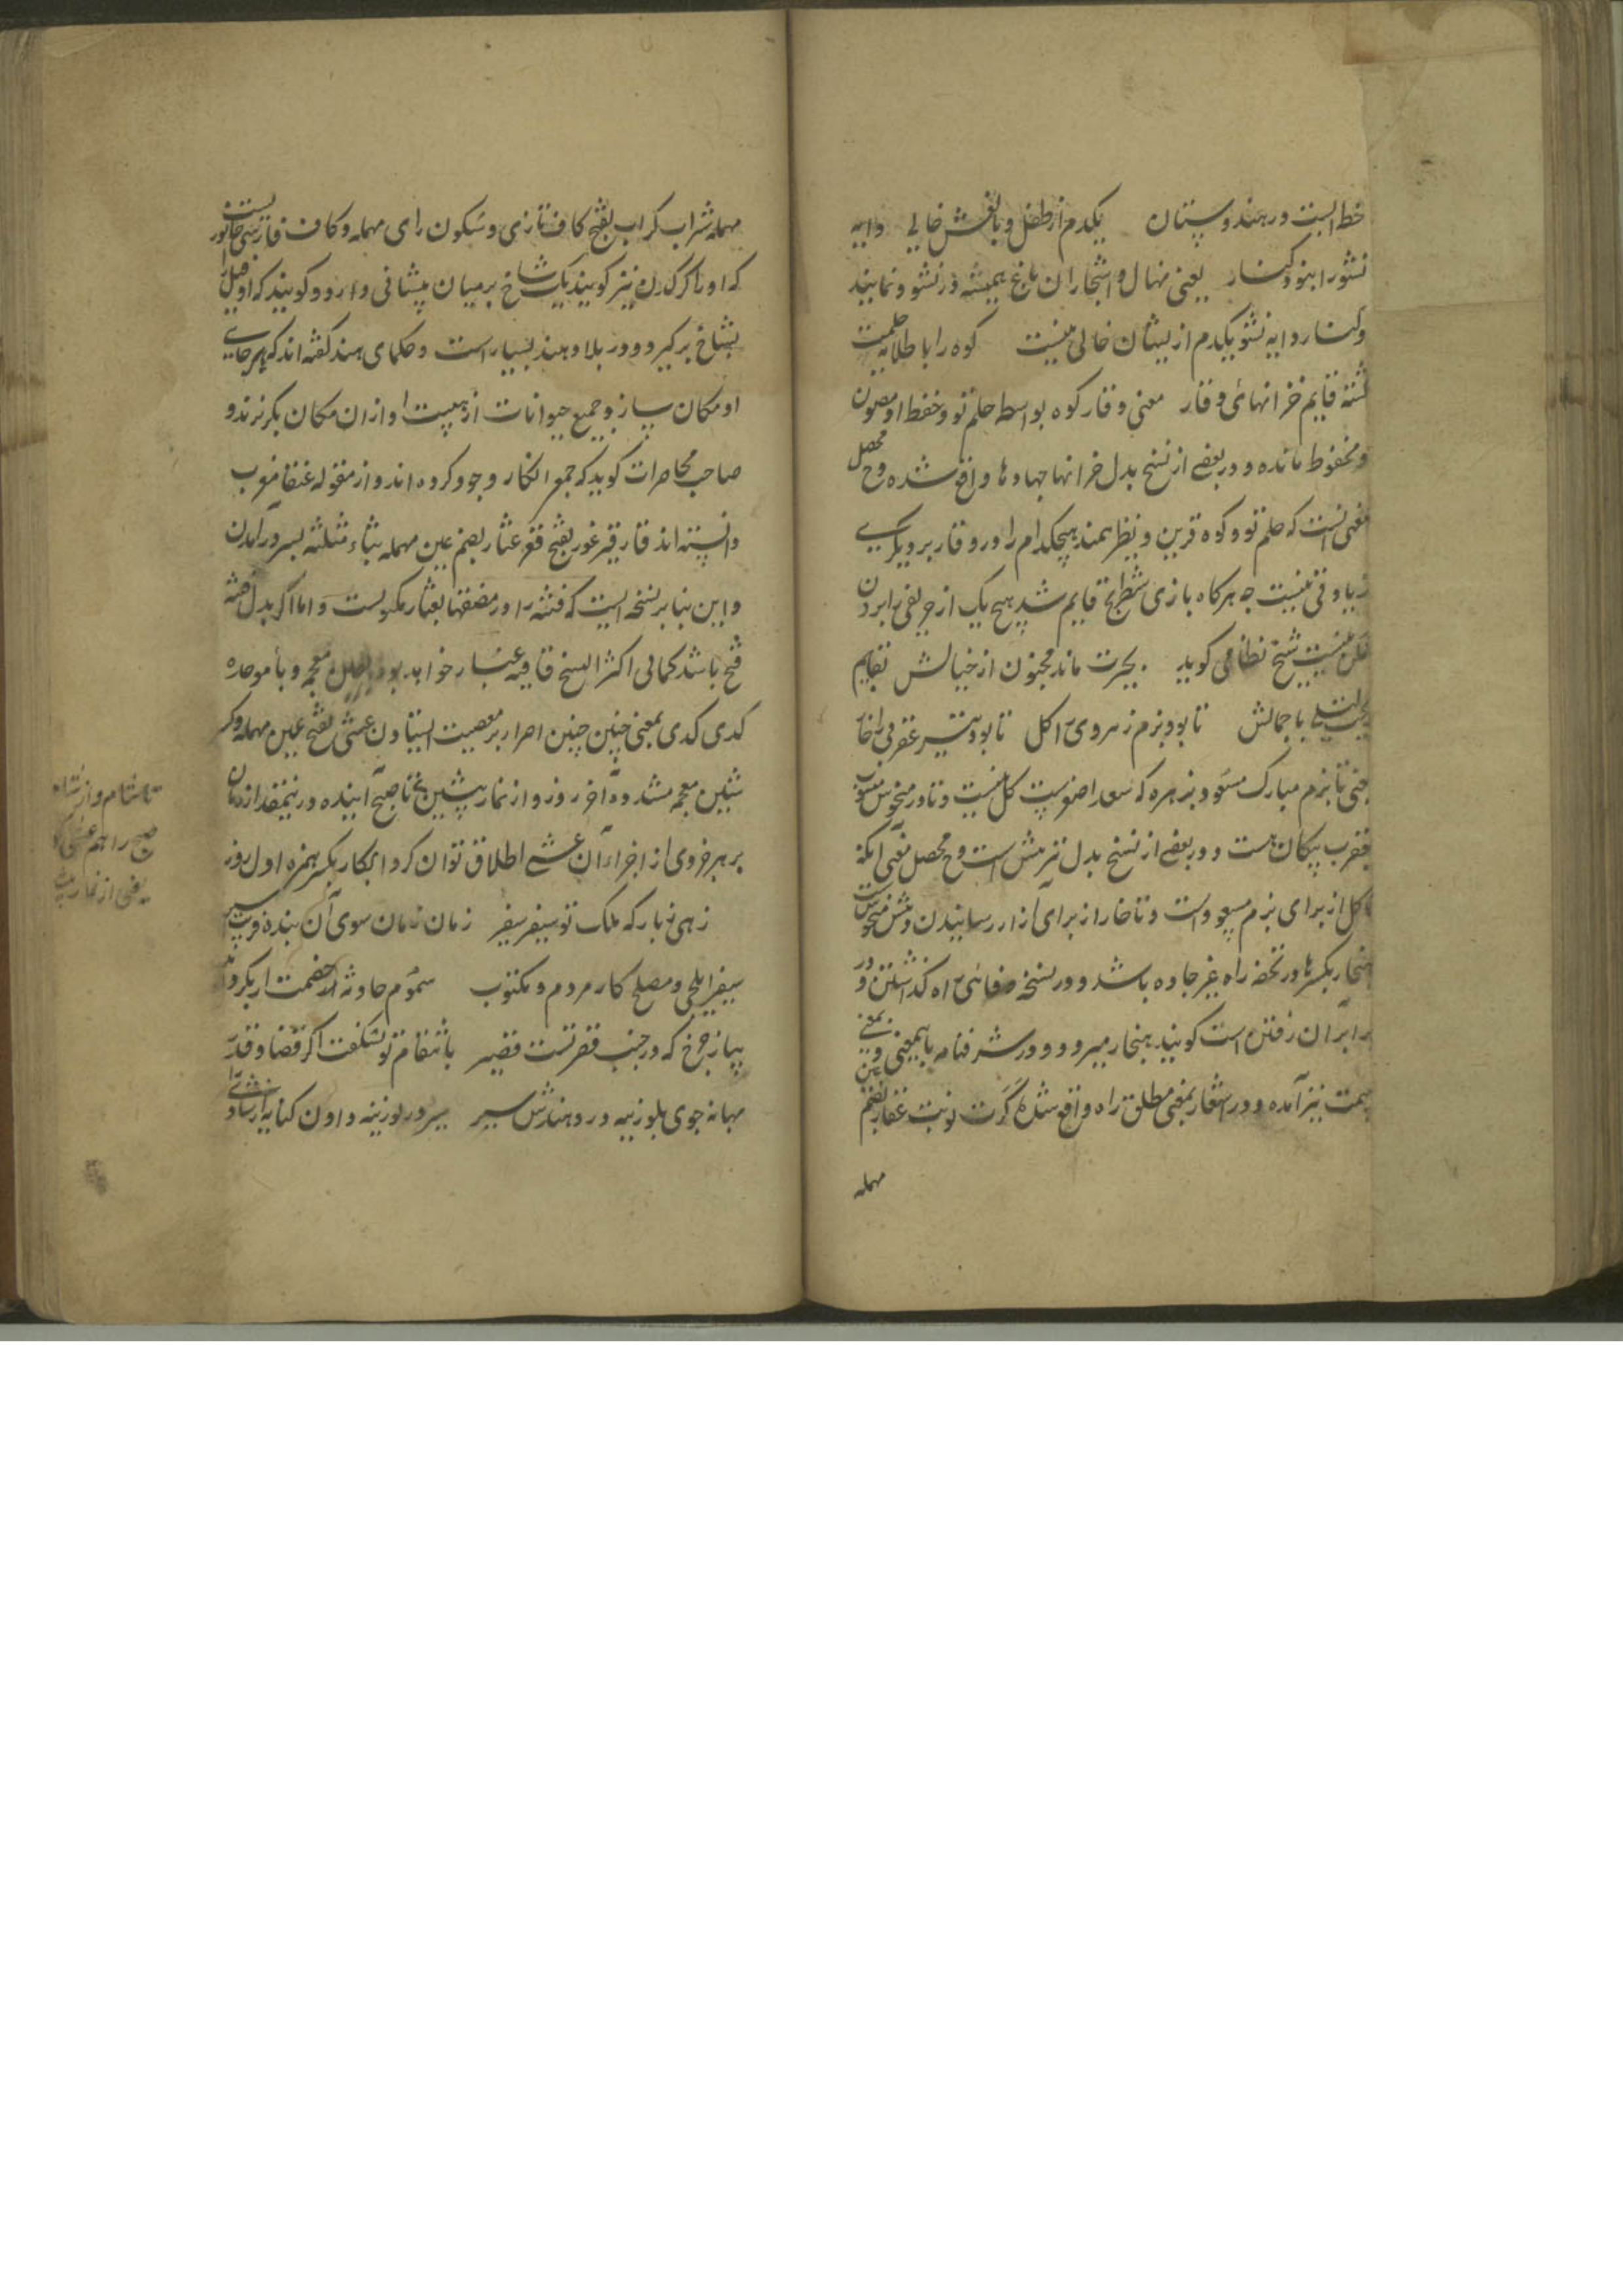 خطه ایست در هندوستان یکدم از طفل و بالغش خالی دایه
نشو را بنو دکنار یعنی نهال و اشجار آن باغ همیشه در نشو و نمایند
و کنار دایه نشو یکدم از ایشان خالی نیست کوه را با طلایه حلمت
قایم خزانهای وقار معنی وقار کوه بواسطه حلم تو و حفظ او مصون
و محفوظ مانده و در بعضی از نسخ بدل خزانها جهاد ها واقع شده و ح محصل
معنی آنست که حلم تو و کوه قرین و نظیر همند هیچکدام را در وقار بر دیگری
زیادتی نیست چه هرکاه بازی شطرنج قایم شد هیچ یک از حریفی را بردن
ممکن نیست شیخ نظامی کوید بحیرت ماند مجنون از خیالش بقایم
لیلی با جمالش تا بود بزم زهره وی را کل تا بود تیر عقربی را خار
یعنی تا بزم مبارک مسعود زهره که سعد اصغرست کل نیست و تا در منحوس
عقرب پیکان هست و در بعضی از نسخ بدل تیر نیش است و ح محصل معنی آنکه
کل از برای بزم مسعود است و تا خار از برای آزار رسانیدن و نیش منحوس است
هنجار بکسر ها در تحفه راه غیر جاده باشد و در نسخه صفائی راه گذاشتن و در
برابر آن رفتن است کویند بهنجار میرود و در شرفنامه باینمعنی و بمعنی
سمت نیز آمده و در اشعار بمعنی مطلق راه واقع شده کرت نوبت عقار بضم
مهمله
مهمله شراب کراب بفتح کاف تازی و سکون رای مهمله و کاف فارسی جانوریست
که او را کرکدن نیز کویند یک شاخ بر میان پیشانی دارد و کویند که او فیل را
بشاخ بر کیرد و در بلاد هند بسیار است و حکمای هند کفته اند که هر جایی
او مکان سازد جمیع حیوانات از هیبت او از ان مکان بکریزند و
صاحب محاضرات کوید که جمع انکار وجود کرده اند و از مقوله عنقا مغرب
دانسته اند قار قیر غور بفتح قعر عثار بضم عین مهمله بثاء مثلثه بسر در آمدن
و این بنا بر نسخه ایست که فتنه را در مضیقها بعثار مکنویست و اما اکر بدل فتنه
فتح باشد کما فی اکثر النسخ قافیه غبار خواهد بود بغین معجمه و باء موحده
کدی کدی بمعنی چنین چنین اصرار بر معصیت ایستادن عشی بفتح عین مهمله و کسر
شین معجمه مشدده آخر روز و از نماز پیشین تا صبح آینده و در ینمقدار زمان
بر هر جزوی از اجزاء آن عشی اطلاق توان کرد ابکار بکسر همزه اول روز
زهی بارکه ملک تو سفیر سفیر زمان زمان سوی آن بنده
سفیر ایلچی و مصلح کار مردم و مکتوب سموم حادثه از خصمت ار بکرداند
بیاز چرخ که در جنب قصر تست قصیر بانتقام تو نشکفت اکر قضا و قدر
بهانه جوی بلوزینه در دهندش سیر سیر در لوزینه دادن کنایه از
تا شام و از شام
صبح را هم عشی
یعنی از نماز